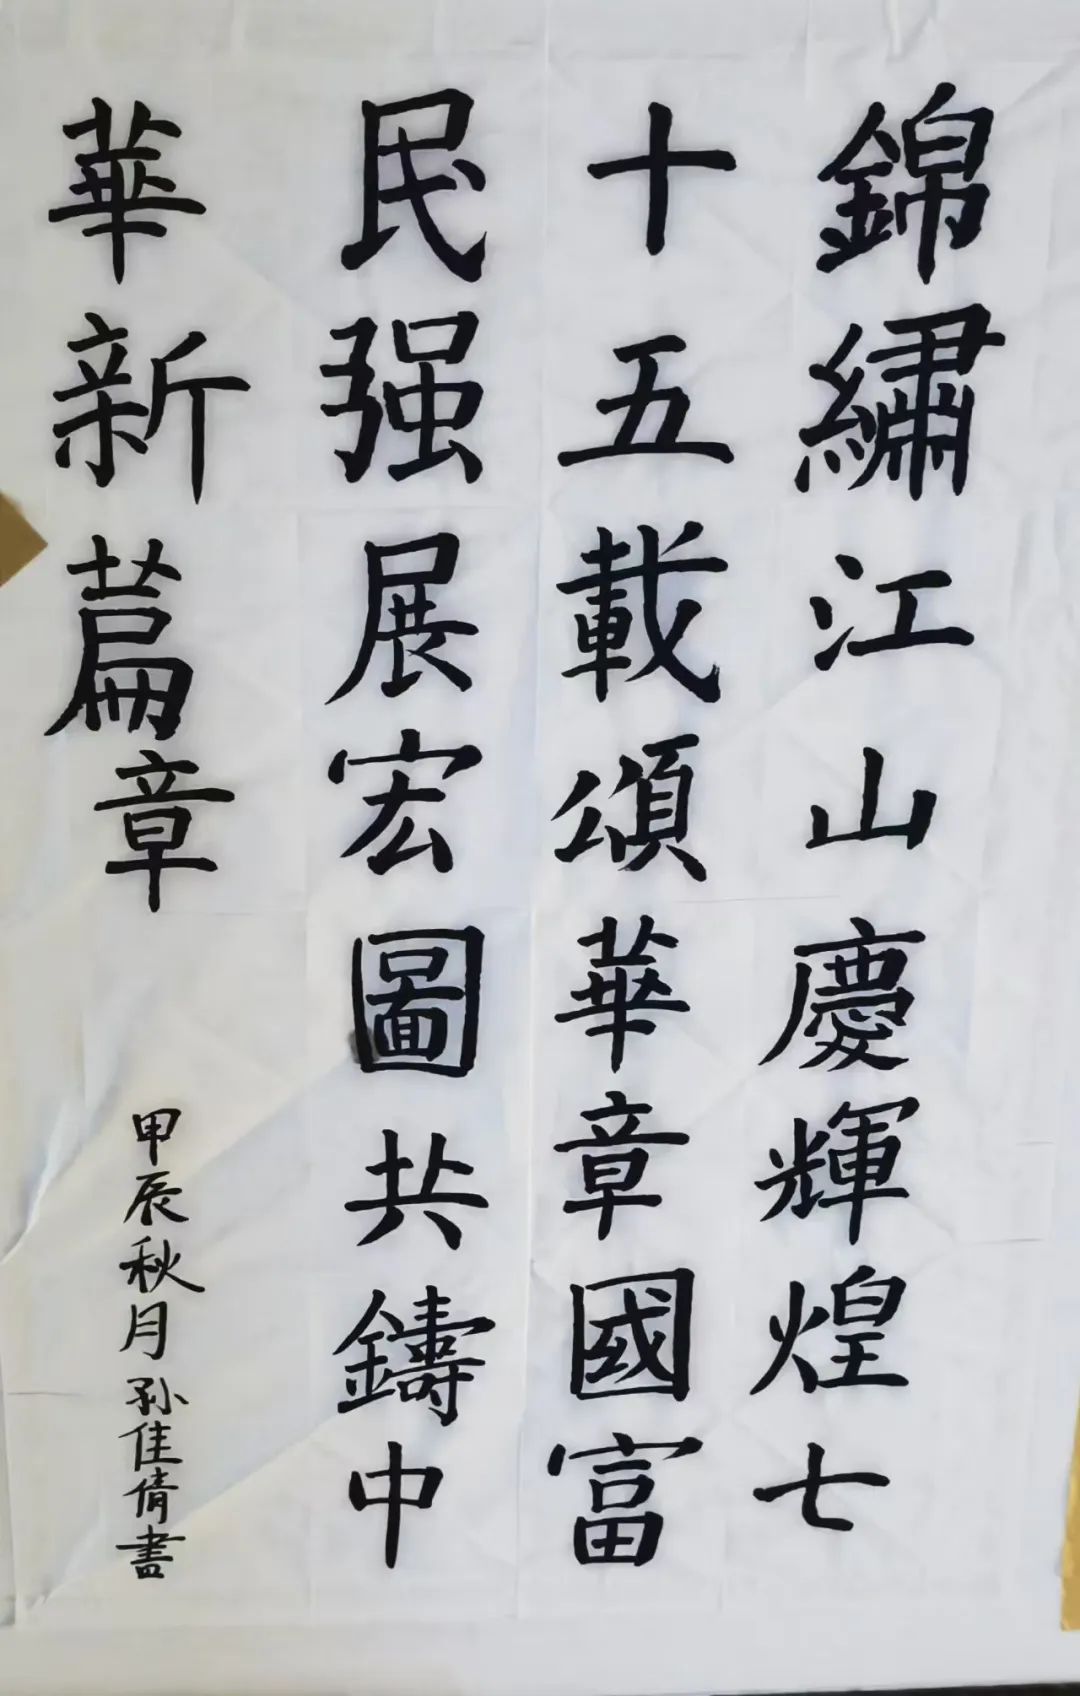 錦繡江山慶輝煌七
十五載頌華章國富
民强展宏圖共鑄中
華新篇章
甲辰秋月孙佳倩書